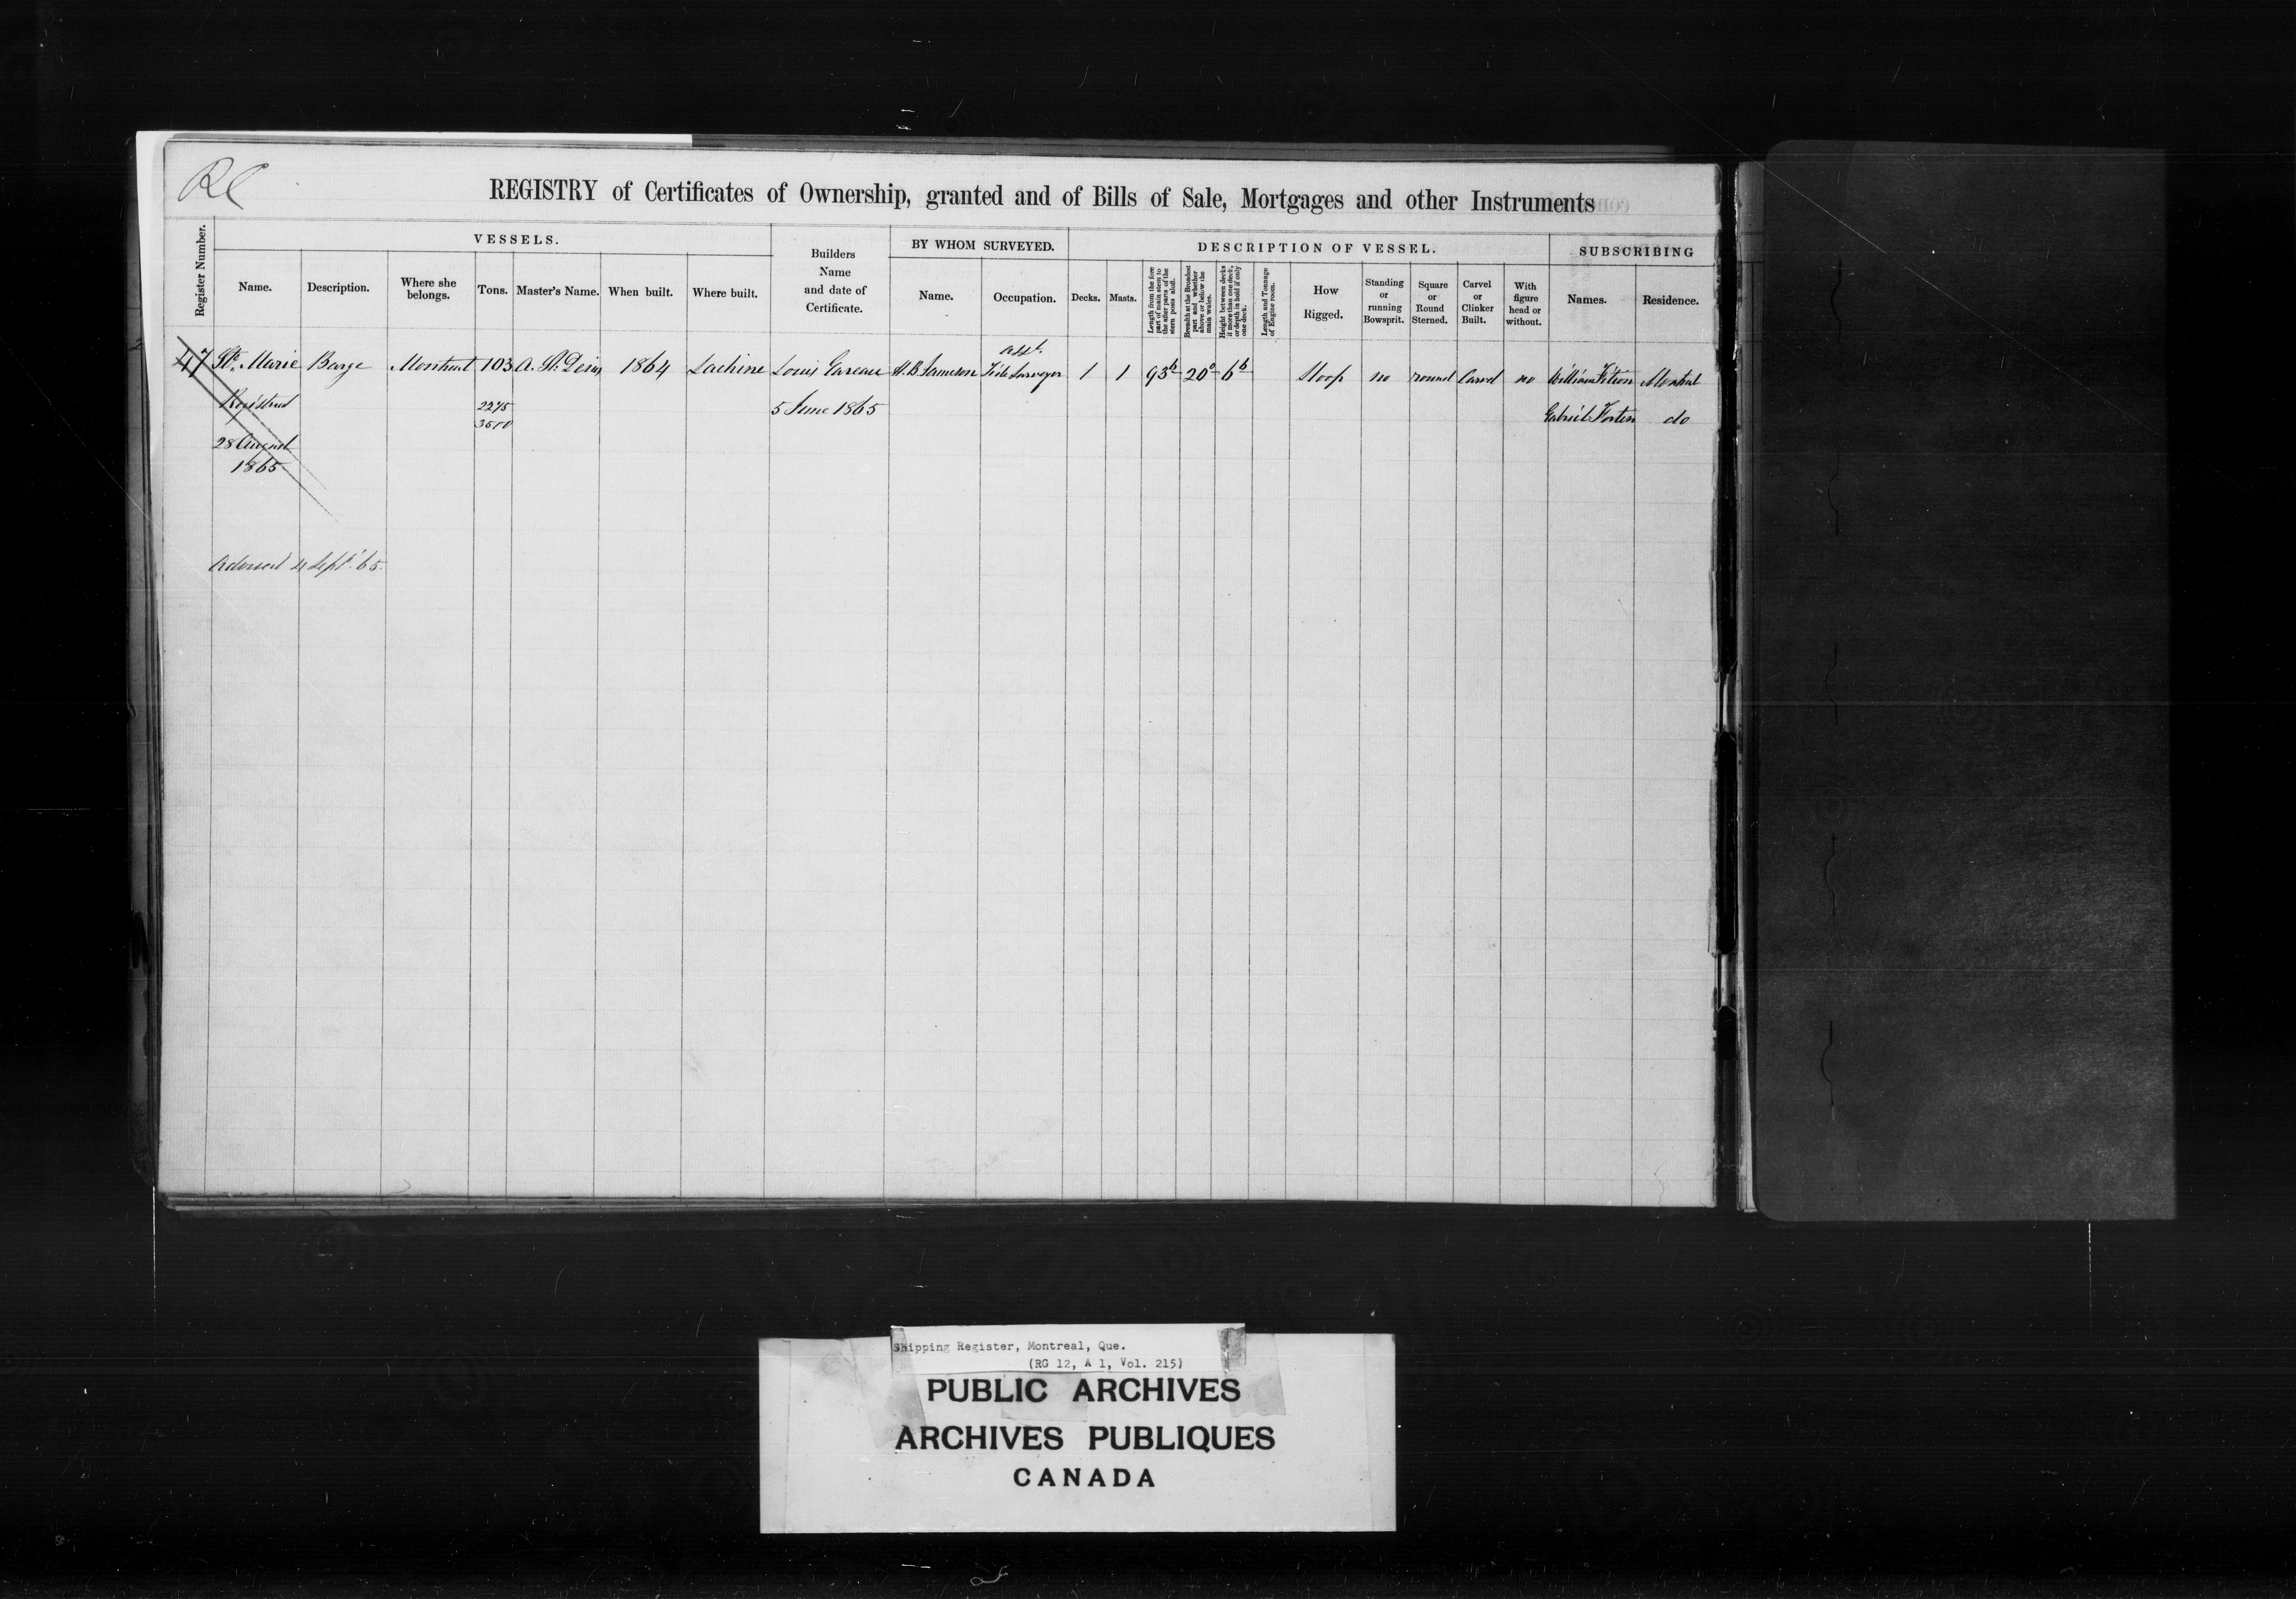 RC
REGISTRY of Certificates of Ownership, granted and of Bills of Sale, Mortgages and other Instruments
Register Number.
VESSELS.
Name.
Description.
Where she belongs.
Tons.
Master's Name.
When built.
Where built.
Builders
Name
and date of
Certificate.
BY WHOM SURVEYED.
Name.
Occupation.
DESCRIPTION OF VESSEL.
Decks.
Masts.
Length from the fore
part of main stem to
the after parts of the
stern posts aloft.
Breadth at the Broadest
part and whether
above or below the
main wales.
Height between decks
if more than one deck,
or depth in hold if only
one deck.
Length and Tonnage
of Engine room.
How
Rigged.
Standing
or
running
Bowsprit.
Square
or
Round
Sterned.
Carvel
or
Clinker
Built.
With
figure
head or
without.
SUBSCRIBING
Names.
Residence.
47 Ste. Marie Barge Montreal 103 A. St. Denis 1864 Lachine Louis Gareau H. B. Jameson Asst. Tide Surveyor 1 1 93 6 20 0 6 6 Sloop no round Carvel no William Filion Montreal
Registered 2275 5 June 1865 Gabriel Fortin do
3500
28 August
1865
4 Sept. '65.
Shipping Register, Montreal, Que.
(RG 12, A 1, Vol. 215)
PUBLIC ARCHIVES
ARCHIVES PUBLIQUES
CANADA